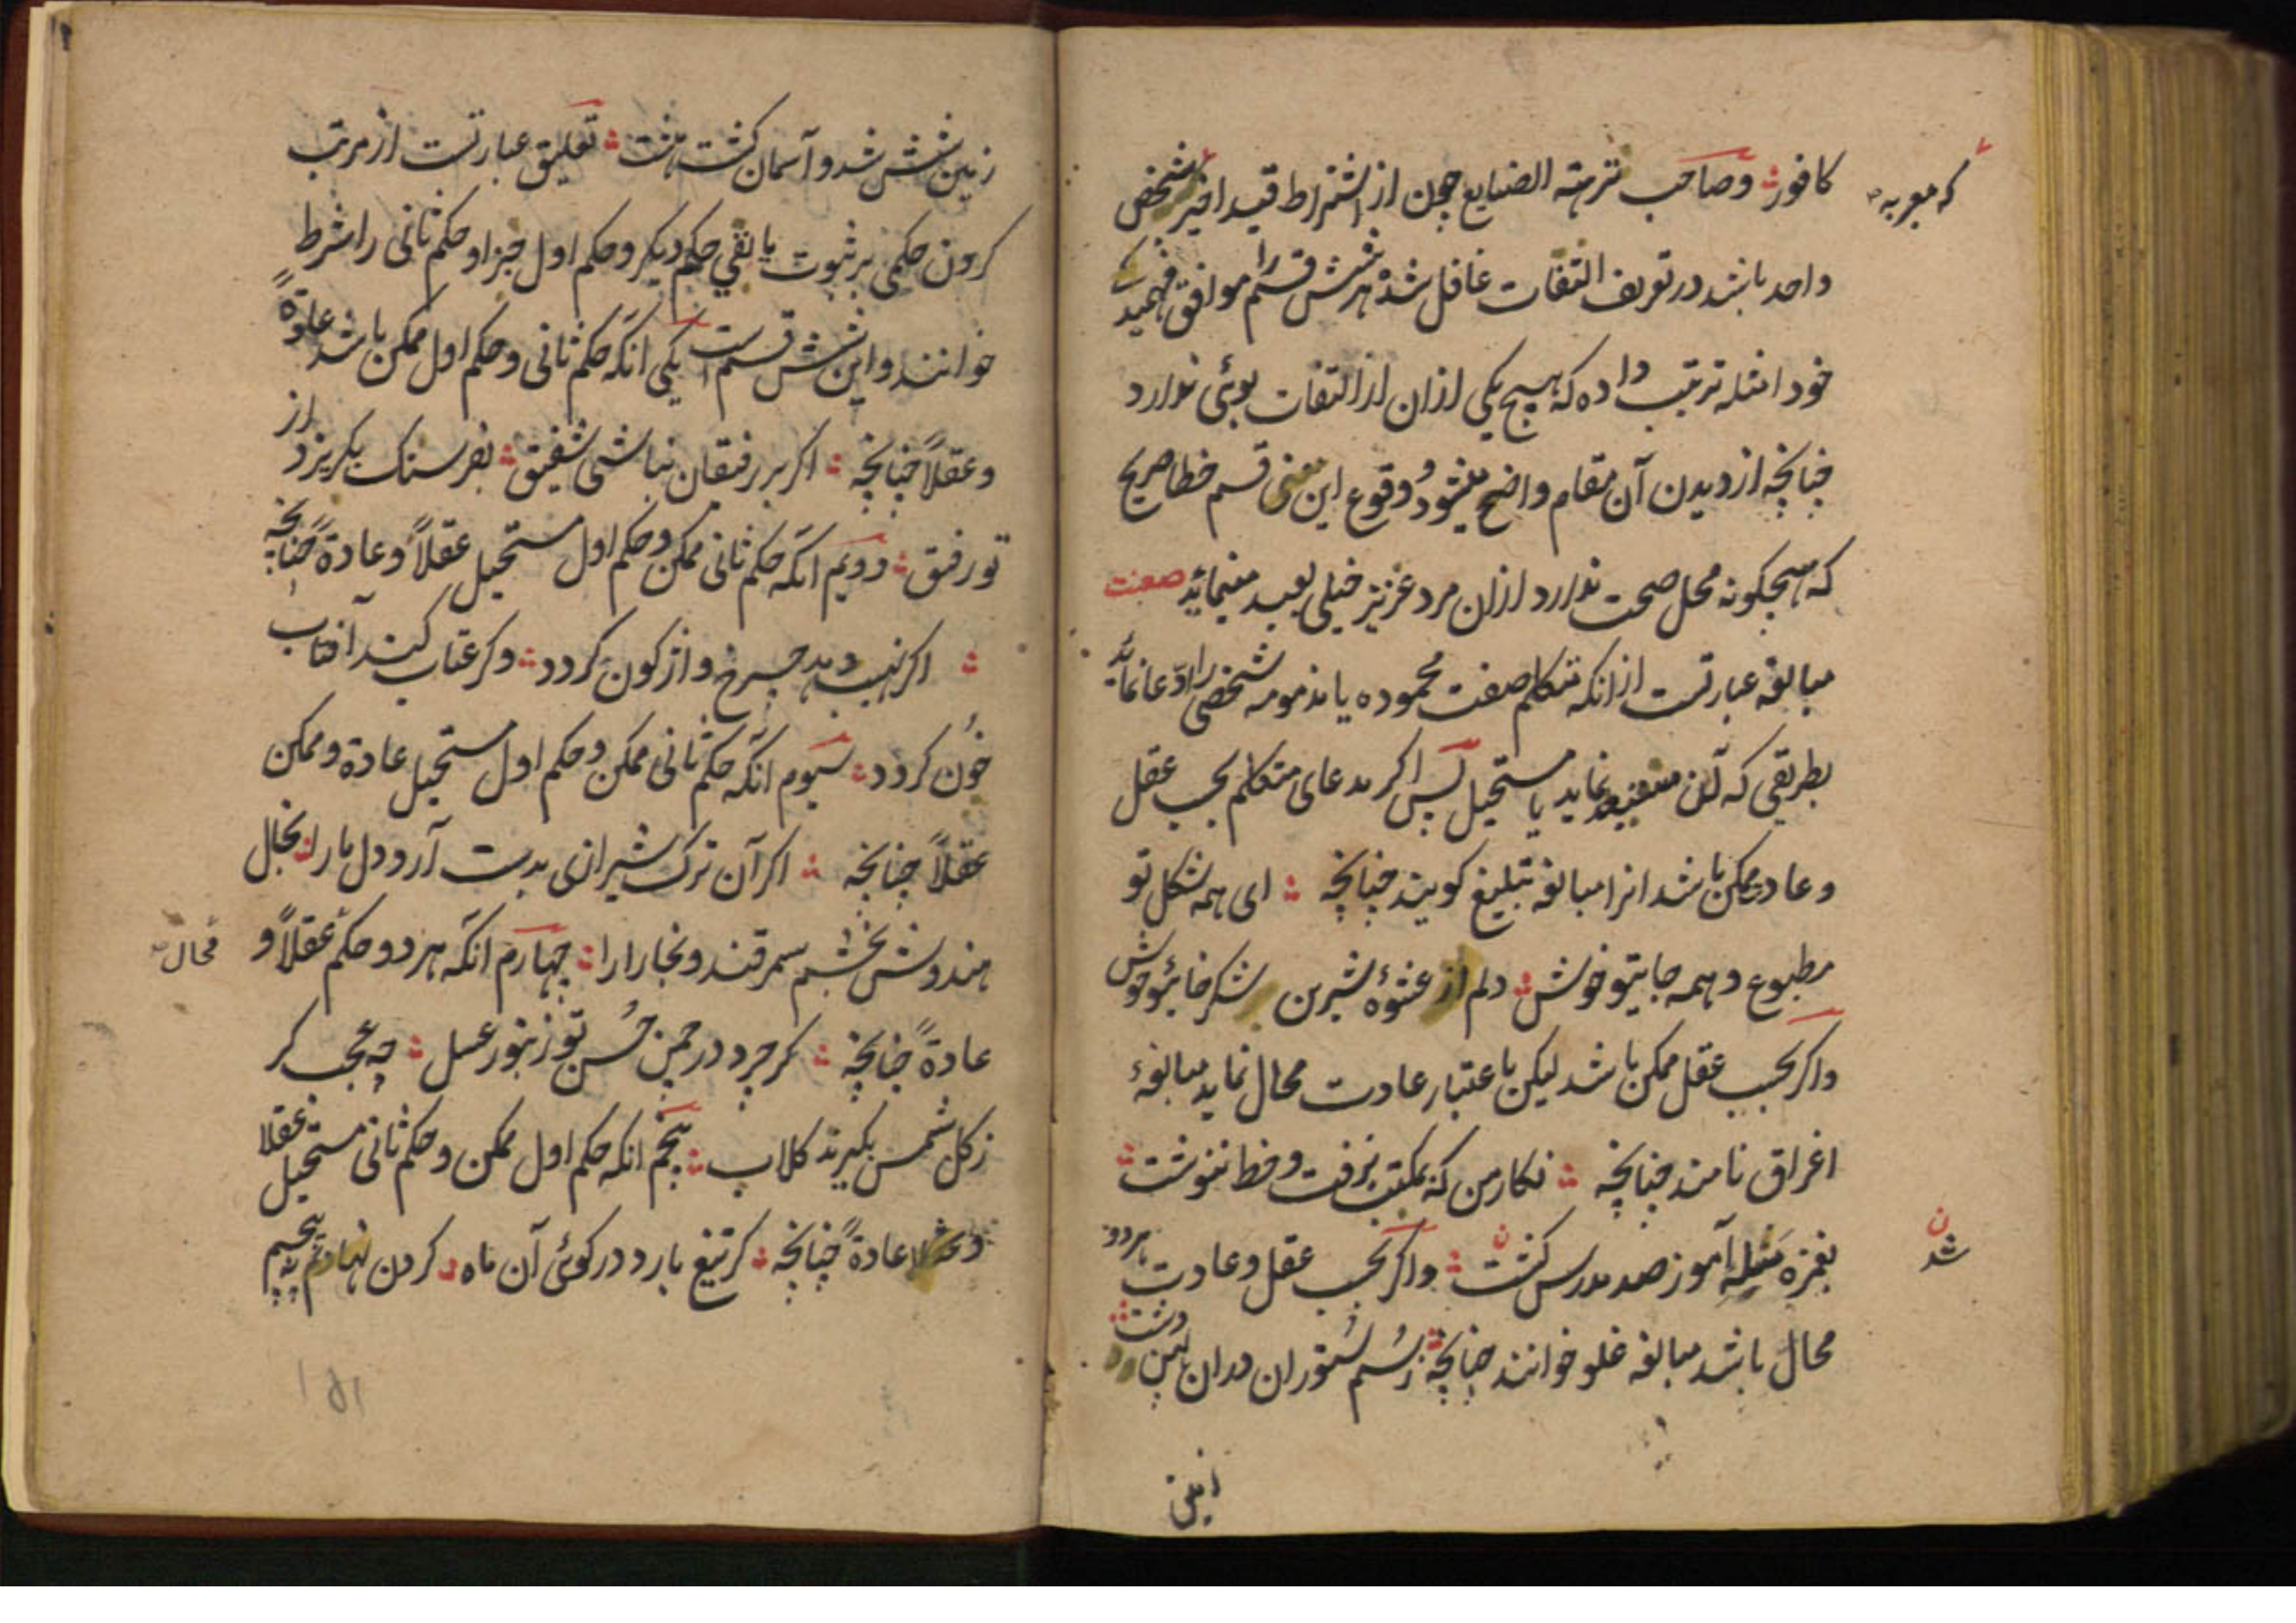 کافور وصاحب نزهته الصنایع چون از اشتراط قید اخیر شخص
که معربه
واحد باشد در تعریف التفات غافل شده هر شش قسم را موافق فهمید
خود امثله ترتیب داده که هیچ یکی ازان از التفات بوئی ندارد
چنانچه از دیدن آن مقام واضح میشود و وقوع این قسم خطا صریح
که هیچکونه محل صحت ندارد ازان مرد عزیز خیلی بعید مینماید صعنت
مبالغه عبارتست ازانکه متکلم صفت محموده یا مذمومه شخصی را ادّعا نماید
بطریقی که آن نماید یا مستحیل پس اکر مدعای متکلم بحسب عقل
وعادت ممکن باشد انرا مبالغه تبلیغ کویند چنانچه ای همه شکل تو
مطبوع وهمه جایتو خوش دلم از عشوهٔ شیرین شکر خائیتو خوش
واکر بحسب عقل ممکن باشد لیکن باعتبار عادت محال نماید مبالغهٔ
اغراق نامند چنانچه نکار من که بمکتب نرفت وخط ننوشت
بغمزه مسٔله آموز صد مدرس کشت واکر بحسب عقل وعادت هردو
ن شد
محال باشد مبالغه غلو خوانند چنانچه ز سُم ستوران دران پهن دشت
زمین شش شد و آسمان کشت هشت تعلیق عبارتست از مرتب
کردن حکمی بر ثبوت یا نفی حکم دیکر وحکم اول جزا وحکم ثانی را شرط
خوانند واین شش قسم است یکی انکه حکم ثانی وحکم اول ممکن باشد عادةً
وعقلاً چنانچه اکر بر رفیقان نباشی شفیق بفرسنک بکریزد از
تو رفیق دویم انکه حکم ثانی ممکن وحکم اول مستحیل عقلاً وعادةً چنانچه
اکر نهیب دهد چرخ واژکون کردد وکر عتاب کند آفتاب
خون کردد سیوم انکه حکم ثانی ممکن وحکم اول مستحیل عادة وممکن
عقلاً چنانچه اکر آن ترک شیرازی بدست آرد دل ما را بخال
هندوش بخشم سمرقند وبخارا را چهارم انکه هر دو حکم عقلاً و
محال
عادةً چنانچه کر چرد در چمن حُسن تو زنبور عسل چه عجب کر
ز کل شمس بکیرند کلاب پنجم انکه حکم اول ممکن وحکم ثانی مستحیل عقلا
عادةً چنانچه کر تیغ بارد در کوئی آن ماه کردن نهادیم
۱۵۱